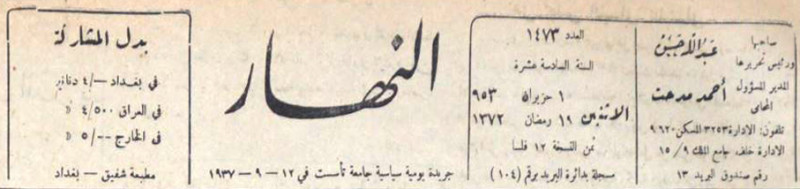 صاحبها
ورئيس تحريرها
عبد الله حسين
المدير المسؤول
المحامي
أحمد مدحت
تلفون: الادارة ٣٢٥٣ المسكن ٩٦٢٠
الادارة خلف جامع الملك ١٥/٩
رقم صندوق البريد ١٣
العدد ١٤٧٣
السنة السادسة عشرة
الاثنين
١ حزيران ٩٥٣
١٩ رمضان ١٣٧٢
ثمن النسخة ١٢ فلساً
مسجلة بدائرة البريد برقم (١٠٤)
النهار
جريدة يومية سياسية جامعة تأسست في ١٢-٩-١٩٣٧
بدل المشاركة
في بغداد ٤/٠٠ دنانير
في العراق ٤/٥٠٠ »
في الخارج ٥/٠٠ »
مطبعة شفيق - بغداد